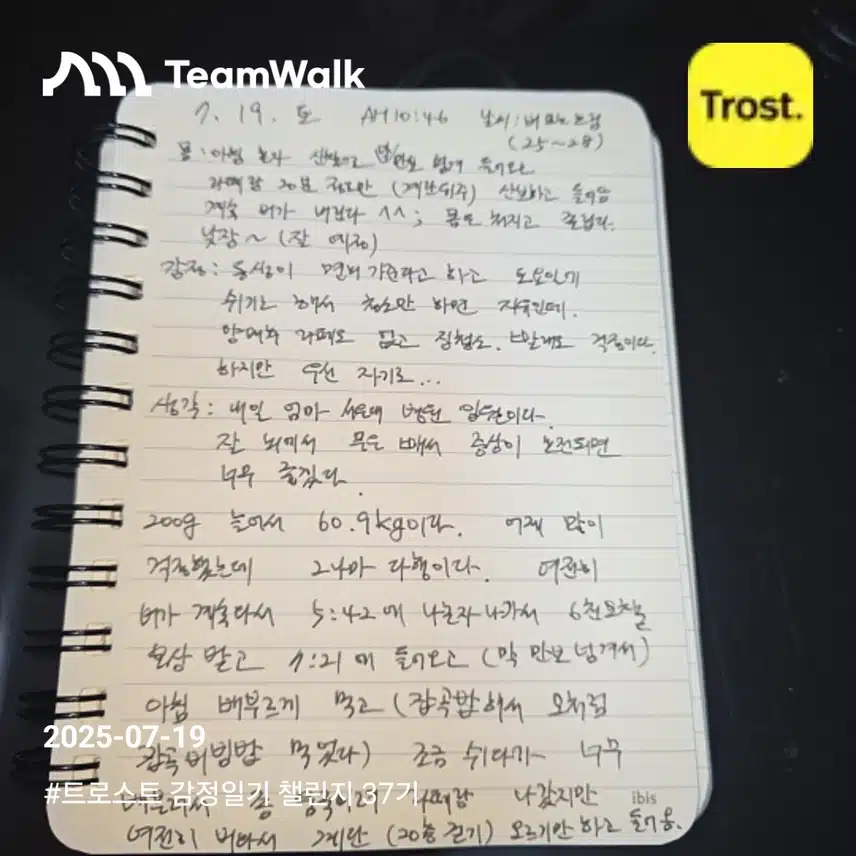 TeamWalk
Trost.
7. 19. 토 AM 10:46 날씨: 비 오는 흐림
(25~28)
몸: 아침 혼자 산책으로 만보 넘겨 들어오고
20분 정도만 (계단위주) 산보하고 들어옴
계속 비가 내린다 ^^; 몸은 처지고 졸립다.
낮잠~ (잘 예정)
감정: 동생이 면회 가준다고 하고 토요일에
쉬기로 해서 청소만 하면 자유인데.
없고 집청소. 빨래도 걱정이다.
하지만 우선 자기로...
생각: 내일 엄마 서울대 병원 입원이다.
잘 되어서 물은 빼서 증상이 호전되면
너무 좋겠다.
200g 늘어서 60.9kg이다. 어제 많이
걱정했는데 그나마 다행이다. 여전히
비가 계속와서 5:42에 나혼자 나가서 6천보
보상 받고 7:21에 들어오고 (막 만보 넘겨서)
아침 배부르게 먹고 (잡곡밥해서 모처럼
잡곡비빔밥 먹었다) 조금 쉬다가 너무
배불러서 나갔지만
여전히 비와서 계단 (20층 걷기) 오르기만 하고 들어옴.
2025-07-19
#트로스트 감정일기 챌린지 37기
ibis